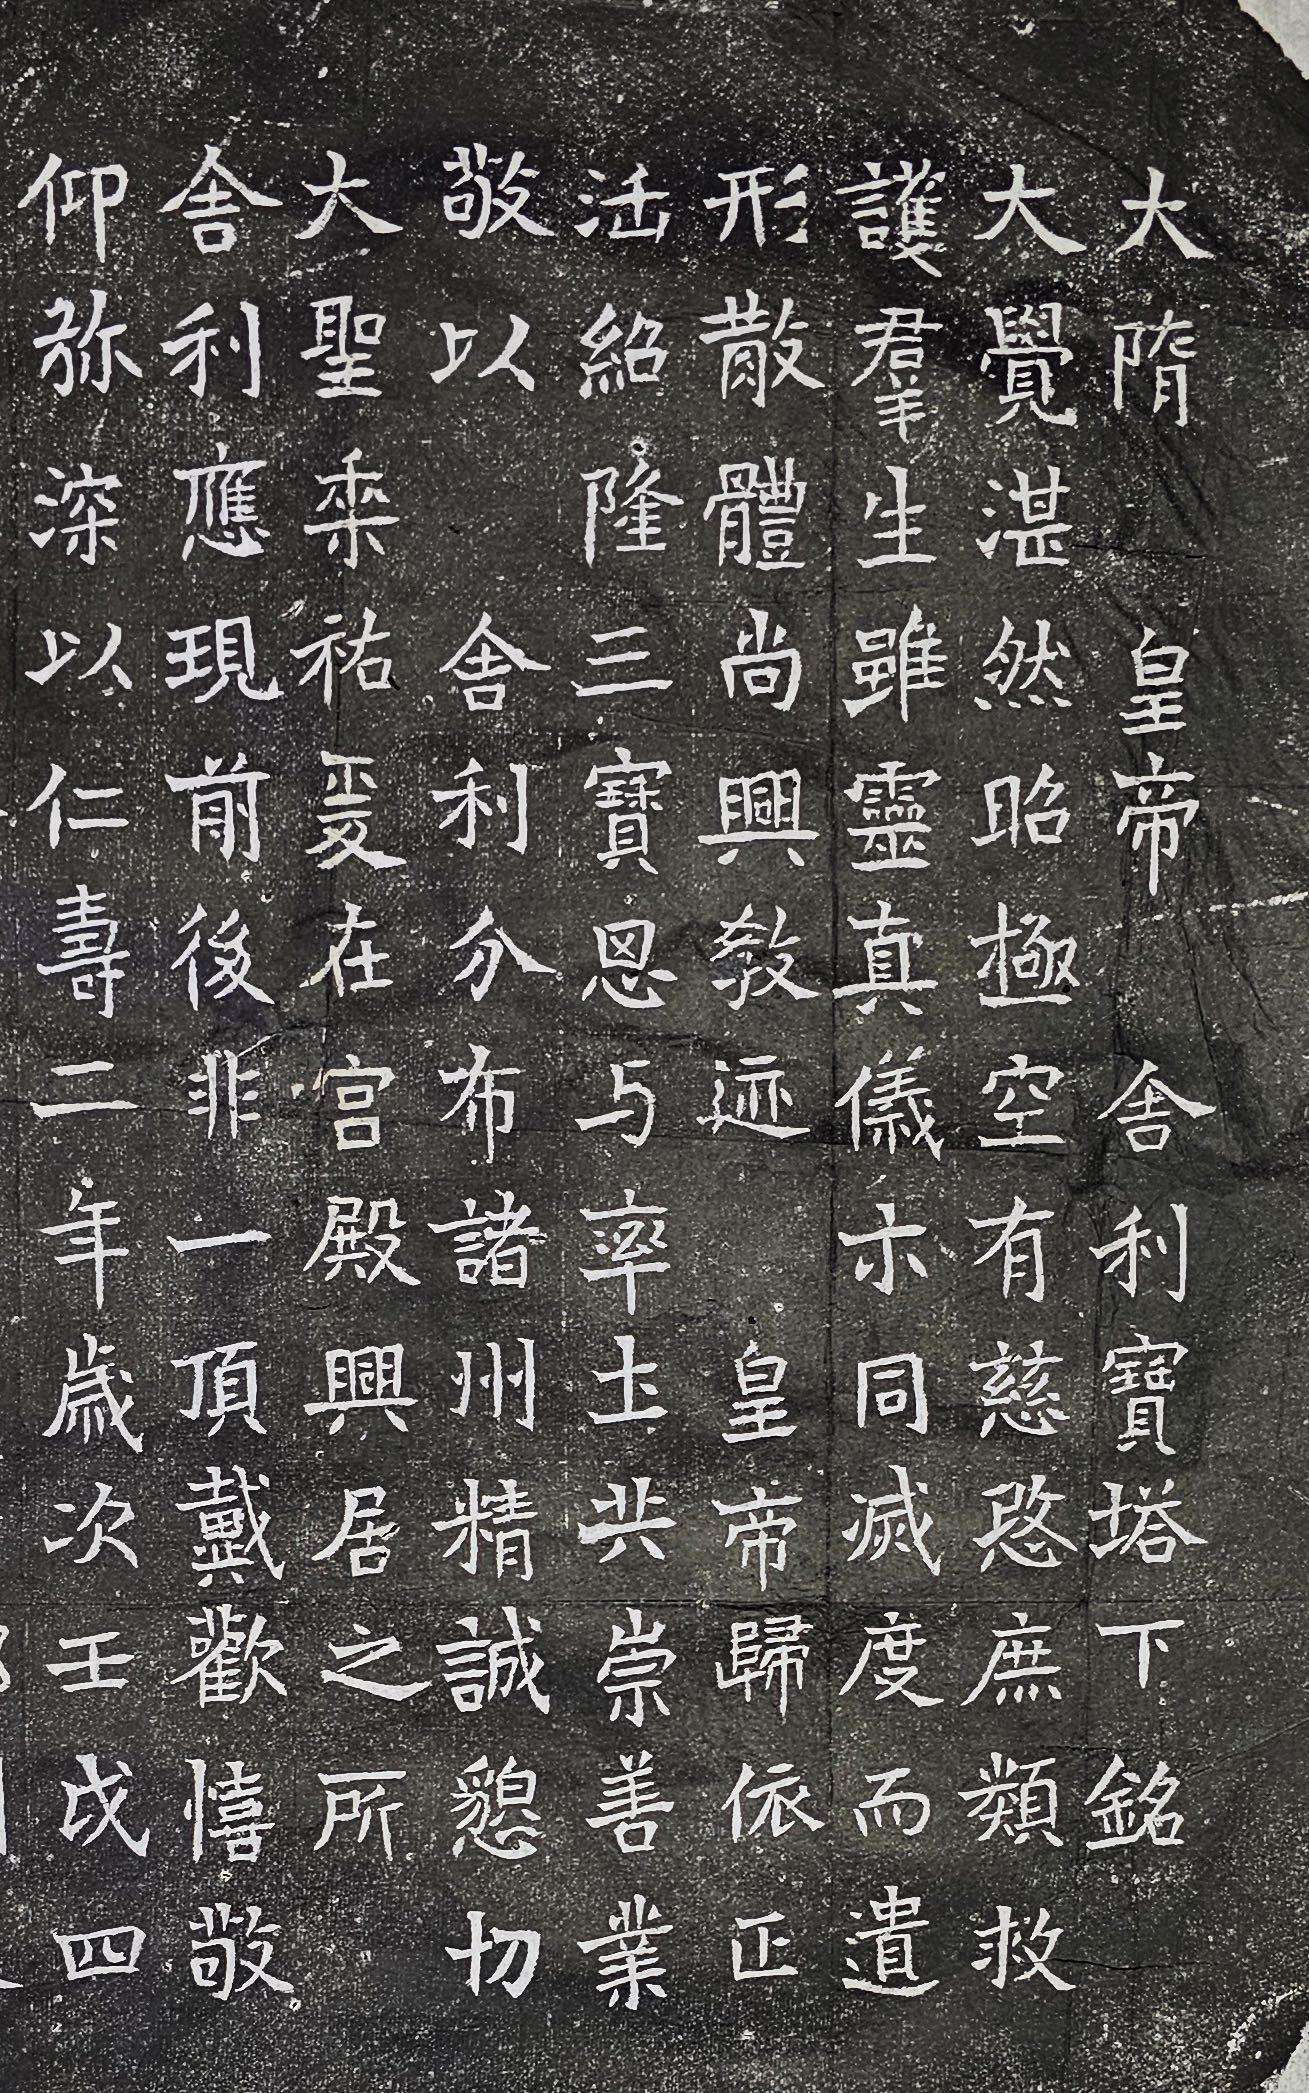 大隋 皇帝 舍利寶塔下銘
大覺湛然昭極空有慈愍庶類救
護羣生雖靈真儀示同滅度而遺
形散體尚興教迹 皇帝歸依正
法紹隆三寶恩与率土共崇善業
敬以 舍利分布諸州精誠懇切
大聖垂祐爰在宮殿興居之所
舍利應現前後非一頂戴歡憘敬
仰弥深以仁壽二年歲次壬戌四